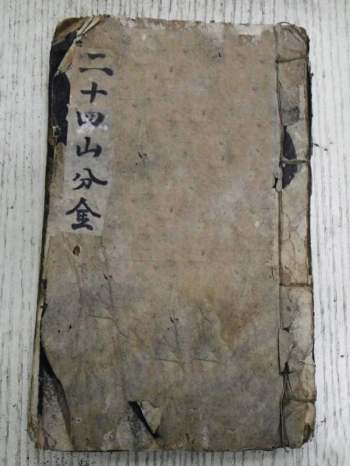 二十四山分金